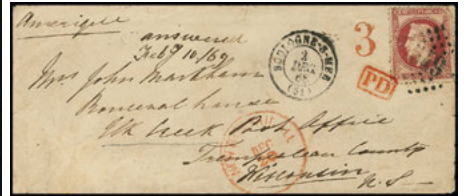 Amerique
answered
Feby 10/69
3
BOULOGNE-S-MER
2
DEC
68
(61)
PD
Mrs John Markham
House
Elk Creek Post Office
Trempealeau County
Wisconsin
U.S
DEC